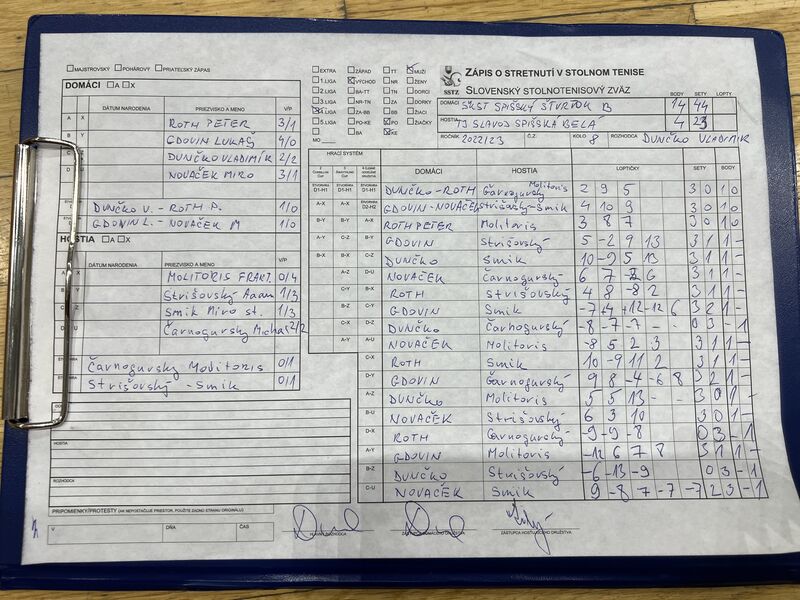 MAJSTROVSKÝ POHÁROVÝ PRIATEĽSKÝ ZÁPAS
DOMÁCI A X
DÁTUM NARODENIA PRIEZVISKO A MENO V/P
A X ROTH PETER 3/1
B Y GDOVIN LUKÁŠ 4/0
C DUNČKO VLADIMÍR 2/2
NOVAČEK MIRO 3/1
DUNČKO V. - ROTH P. 1/0
GDOVIN L. - NOVAČEK M 1/0
HOSTIA A X
DÁTUM NARODENIA PRIEZVISKO A MENO V/P
MOLITORIS FRANT. 0/4
Strišovský Adam 1/3
Smik Miro st. 1/3
Čarnogursky Michal 2/2
Čarnogursky Molitoris 0/1
Strišovský - Smik 0/1
HOSTIA
ROZHODCA
PRIPOMIENKY/PROTESTY (AK NEPOSTAČUJE PRIESTOR, POUŽITE ZADNÚ STRANU ORIGINÁLU)
V DŇA ČAS
EXTRA ZÁPAD TT MUŽI
1.LIGA VÝCHOD NR ŽENY
2.LIGA BA-TT TN DORCI
3.LIGA NR-TN ZA DORKY
4.LIGA ZA-BB BB ŽIACI
5.LIGA PO-KE PO ŽIAČKY
MO BA KE
SSTZ
ZÁPIS O STRETNUTÍ V STOLNOM TENISE
SLOVENSKÝ STOLNOTENISOVÝ ZVÄZ BODY SETY LOPTY
DOMÁCI ŠKST SPIŠSKÝ ŠTVRTOK B 14 44
HOSTIA TJ SLAVOJ SPIŠSKÁ BELÁ 4 23
ROČNÍK 2022/23 Č.Z. KOLO 8 ROZHODCA DUNČKO VLADIMÍR
HRACÍ SYSTÉM
DOMÁCI HOSTIA LOPTIČKY SETY BODY
DUNČKO - ROTH Čarnogurský Molitoris 2 9 5 3 0 1 0
GDOVIN - NOVAČEK Strišovský - Smik 4 10 9 3 0 1 0
A-X ROTH PETER Molitoris 3 8 7 3 0 1 0
B-Y GDOVIN Strišovský 5 -2 9 13 3 1 1 -
C-Z DUNČKO Smik 10 -9 5 13 3 1 1 -
D-U NOVAČEK Čarnogurský 6 7 -8 6 3 1 1 -
B-X ROTH Strišovský 4 8 -8 2 3 1 1 -
GDOVIN Smik -7 +4 +12 -12 6 3 2 1 -
DUNČKO Čarnogurský -8 -7 -7 - 0 3 - 1
NOVAČEK Molitoris -8 5 2 3 3 1 1 -
C-X ROTH Smik 10 -9 11 2 3 1 1 -
D-Y GDOVIN Čarnogurský 9 8 -4 -6 8 3 2 1 -
A-Z DUNČKO Molitoris 5 5 13 - 3 0 1 -
B-U NOVAČEK Strišovský 6 3 10 3 0 1 -
D-X ROTH Čarnogurský -9 -9 -8 0 3 - 1
A-Y GDOVIN Molitoris -12 6 7 8 3 1 1 -
B-Z DUNČKO Strišovský -6 -13 -9 0 3 - 1
C-U NOVAČEK Smik 9 -8 7 -7 -7 2 3 - 1
HLAVNÝ ROZHODCA ZÁSTUPCA DOMÁCEHO DRUŽSTVA ZÁSTUPCA HOSŤUJÚCEHO DRUŽSTVA